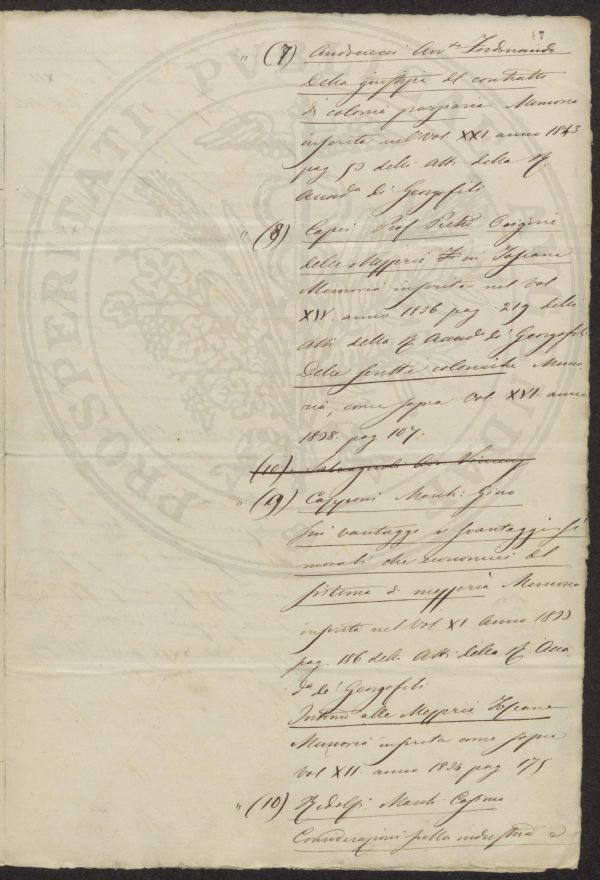 17
" (7) Andreucci Avv.to Ferdinando
Della giustizia del contratto
di colonia parziaria Memoria
inserita nel Vol. XXI anno 1843
pag 53 delli Atti della R.
Accad.a di Georgofili
" (8) Capei Prof. Pietro Origini
delle Mezzerie in Toscana
Memoria inserita nel Vol.
XIV. anno 1836 pag. 219 delli
Atti della R. Accad.a de' Georgofili
Delle scritte coloniche Memo-
ria, come sopra Vol. XVI. anno
1838. pag 107.
(10) Salvagnoli Avv Vincenz
" (9) Capponi March: Gino
Sui vantaggi e svantaggi sì
morali che economici del
sistema di mezzeria Memoria
inserita nel Vol. XI anno 1833
pag. 186 delli Atti della R. Acca-
d.a de' Georgofili
Intorno alle Mezzerie Toscane
Memoria inserita come sopra
Vol XII. anno 1834 pag 175
" (10) Ridolfi March. Cosimo
Considerazioni sulla industria e
PROSPERITATI PUBLICAE